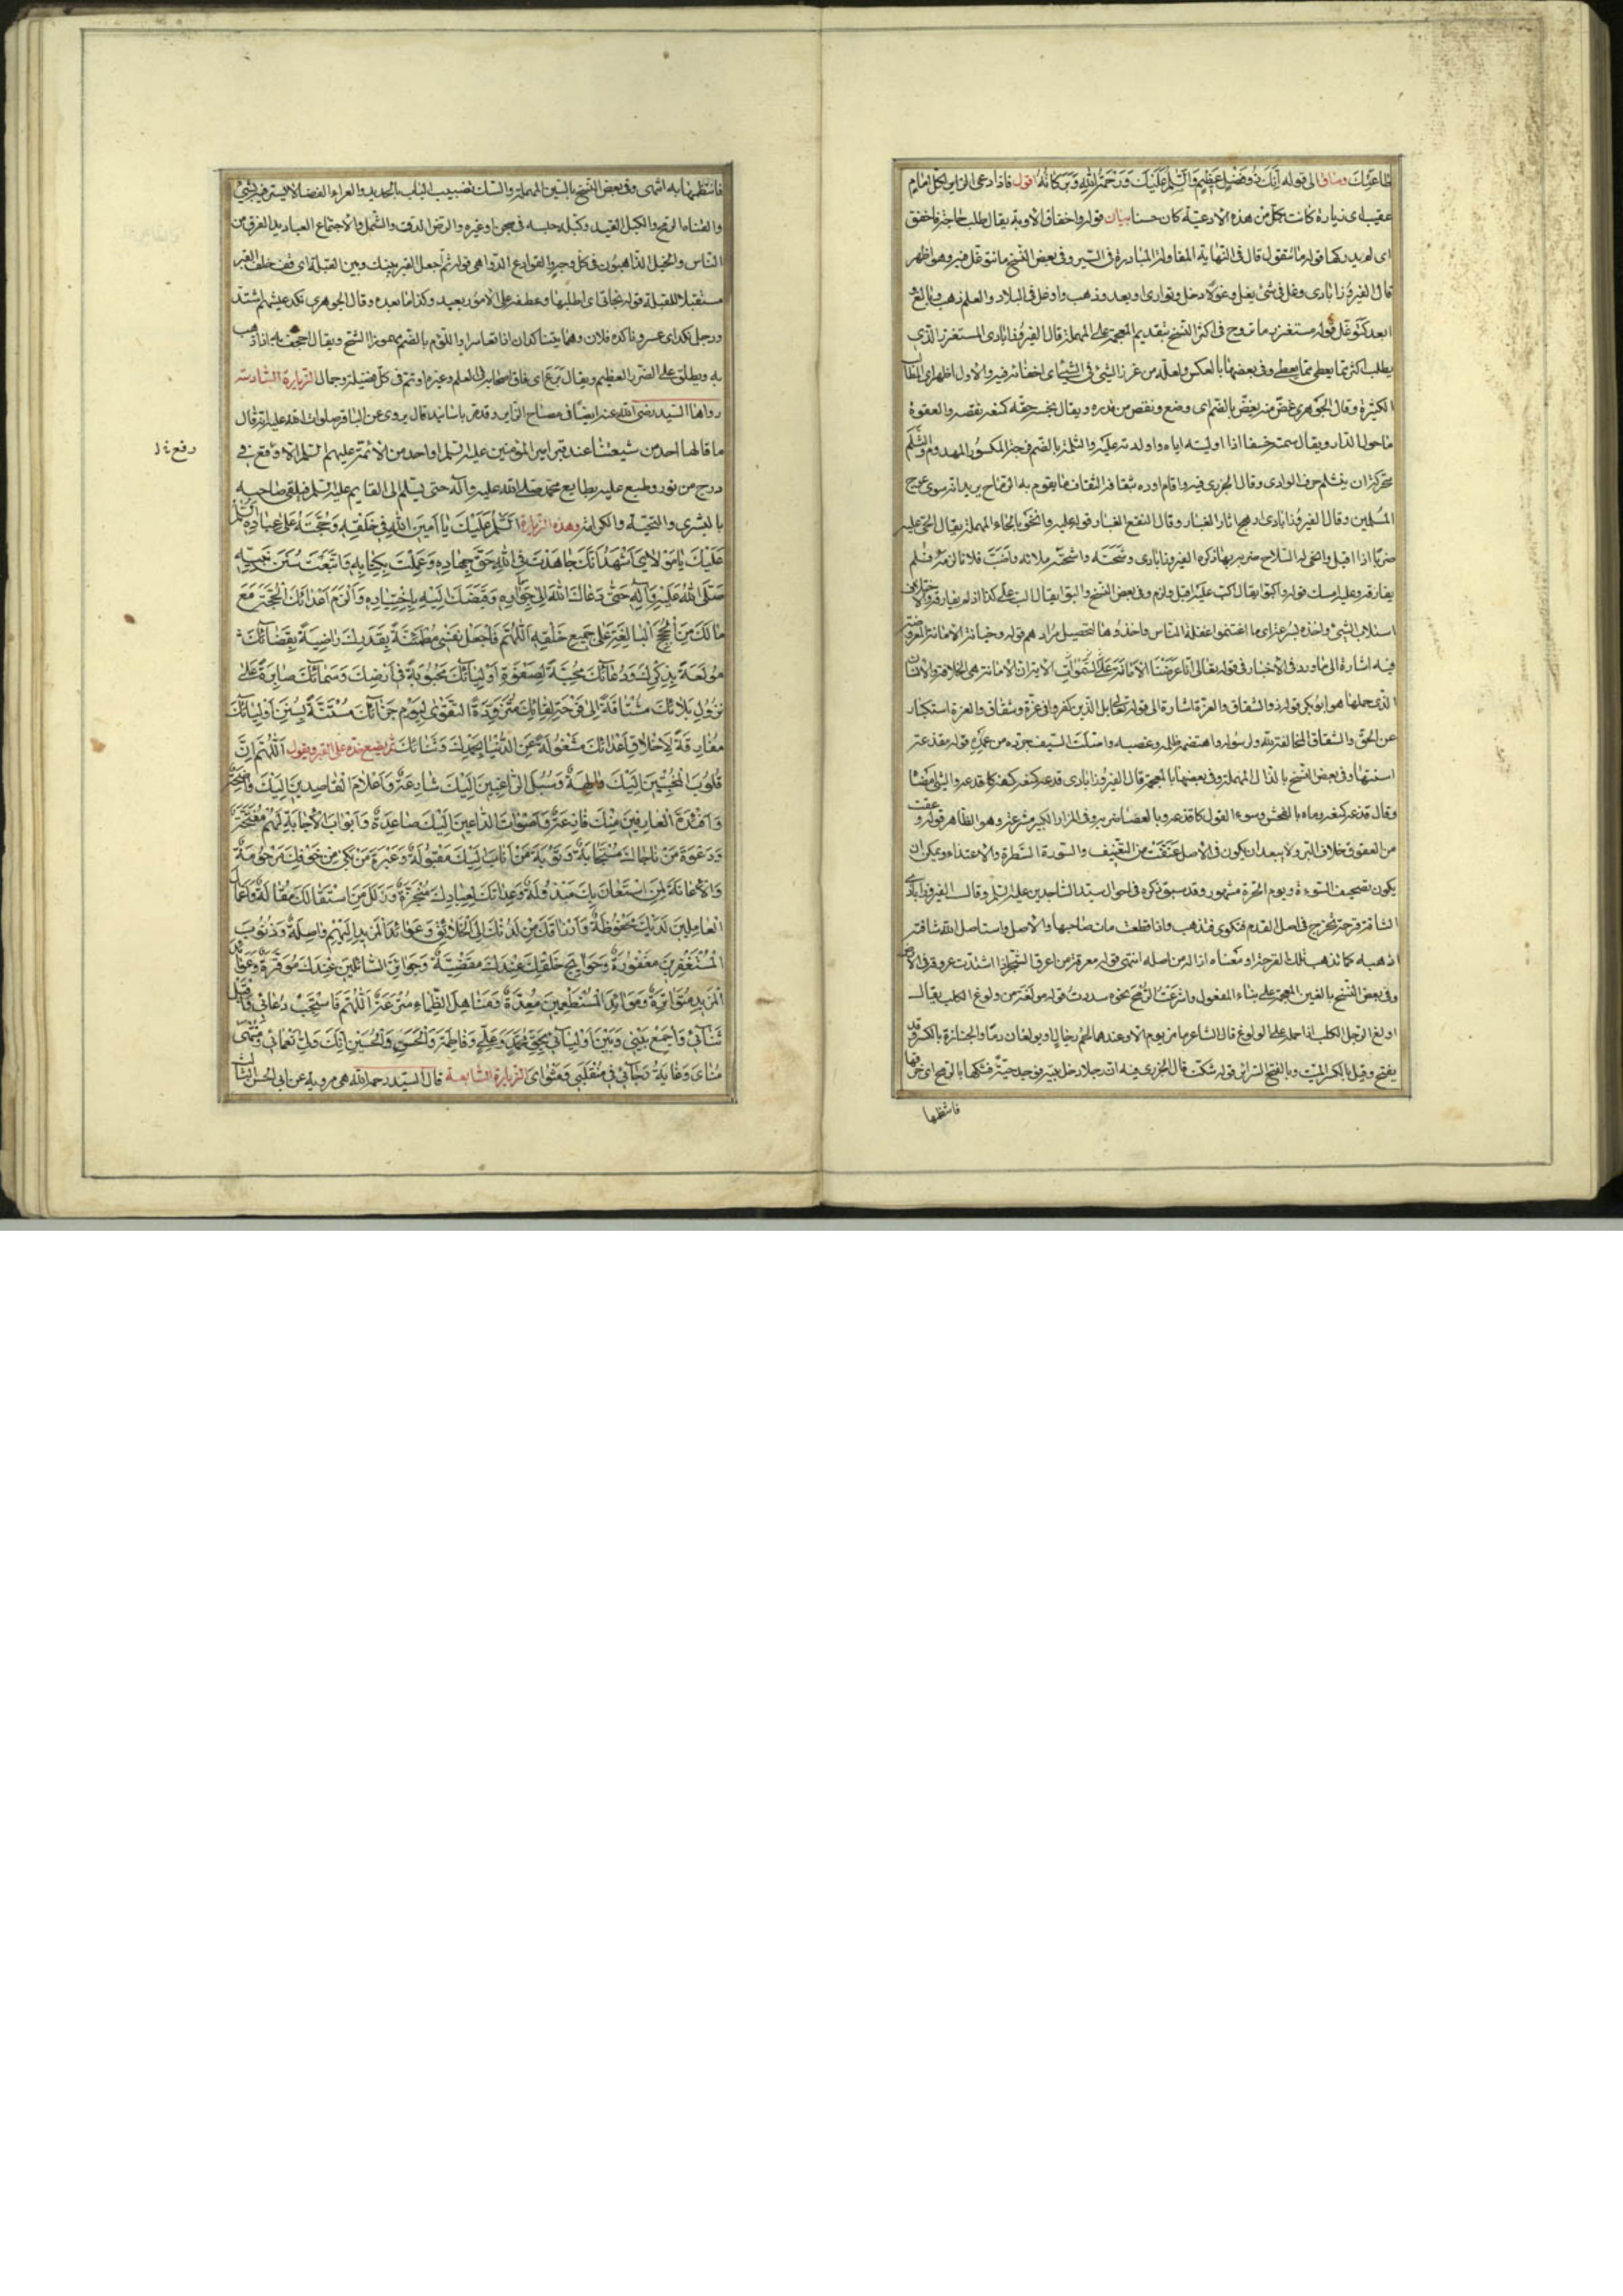 طاعتك وساق الى قوله انك ذو فضل عظيم والسلم عليك ورحمة الله وبركاته اقول فاذا دعى الزاير لكل امام
عقيب اى زيارة كانت بكل من هذه الادعية كان حسنا بيان قوله واخفاق الاوبة يقال طلب حاجة فاخفق
اى لم يدركها قوله ما تتقول قال فى النهاية المفاولة المبادرة فى السير وفى بعض النسخ ما تتوغل فيه وهو اظهر
قال الفيروزابادى وغل فى شئ يغل وغولا دخل وتوارى او بعد وذهب واوغل فى البلاد والعلم ذهب وبالغ
ابعد كتوغل قوله مستغزر ما تروح فى اكثر النسخ بتقديم المعجمة على المهملة قال الفيروزابادى المستغزر الذى
يطلب اكثر مما يعطى وفى بعضها بالعكس ولعله من غرز الشئ فى الشئ اى اخفائه فيه والاول اظهر اى
الكثيرة وقال الجوهرى غض منه يغض بالضم اى وضع ونقص من قدره ويقال بخسه حقه كمنعه نقصه والعقوة
ماحول الدار ويقال سمته خسفا اذا اوليته اياه واولدته عليه والثلمة بالضم فرجة المكسور والمهدوم
محركة ان ينثلم حرف الوادى وقال الجزرى فيه واقام اوده بثقافه الثقاف ما يقوم به الرماح يريد انه سوى عوج
المسلمين وقال الفيروزابادى ارهج اثار الغبار وقال النقع الغبار قوله عليه وانحوا بالحاء المهملة يقال انحى عليه
ضربا اذا اقبل وانحى له السلاح ضربه بها ذكره الفيروزابادى وشحنه واشحنه ملاءه واضب فلانا لزمه فلم
يفارقه وعليه امسك قوله واكبوا يقال اكب عليه اقبل ولزم وفى بعض النسخ والبوا يقال الب على كذا اذا لم يفارقه
استلاب الشئ واخذه بسرعة اى ما اغتنموا غفلة الناس واخذوها لتحصيل مرادهم قوله وخيانة الامانة
فيه اشارة الى ما ورد فى الاخبار فى قوله تعالى انا عرضنا الامانة على السموات الاية ان الامانة هى الخلافة والانسان
الذى حملها هو ابوبكر قوله ذو الشقاق والعزة اشارة الى قوله تعالى بل الذين كفروا فى عزة وشقاق والعزة استكبار
عن الحق والشقاق المخالفة لله ولرسوله واهتضمه ظلمه وغصبه واستلت السيف جرده من غمده قوله مقذعة
استنها وفى بعض النسخ بالدال المهملة وفى بعضها بالمعجمة قال الفيروزابادى قدعه كمنعه كفه كاقدعه والشئ امضاه
وقال قذعه كمنعه رماه بالفحش وسوء القول كاقذعه وبالعصا ضربه وفى المزار الكبير مشرعة وهو الظاهر قوله
من العقوق خلاف البر ولا يبعد ان يكون فى الاصل عنفت من التعنيف والسورة السطوة والاعتداء ويمكن ان
يكون تصحيف السوءة ويوم الحرة مشهور وقد سبق ذكره فى احوال سيد الساجدين عليه السلم وقال الفيروزابادى
الشافة قرحة تخرج فى اصل القدم فتكوى فتذهب واذا قطعت مات صاحبها والاصل واستاصل الله شافته
اذهبه كما تذهب تلك القرحة او معناه ازاله من اصله انتهى قوله معرقة من اعرق الشجر اذا اشتدت عروقه فى الارض
وفى بعض النسخ بالغين المعجمة على بناء المفعول واشرعت الرمح نحوه سددت قوله مولغة من ولوغ الكلب يقال
اولغ الرجل الكلب اذا حمله على الولوغ قال الشاعر ما مر يوم الا وعندهما لحم رجال او يولغان دما والجنازة بالكسر وقد
يفتح وقيل بالكسر الميت وبالفتح السرير قوله شكت قال الجزرى فيه ان رجلا دخل بيته فوجد حية فشكها بالرمح اى خرقها
فانتظمها
فانتظمها به انتهى وفى بعض النسخ بالسين المهملة والسك تضبيب الباب بالحديد والعراء الفضاء لا يستر فيه بشئ
والقناة الرمح والكبل القيد وكبله حبسه فى سجن او غيره والرض الدق والشمل الاجتماع العباديد الفرق من
الناس والخيل الذاهبون فى كل وجه والقوارع الدواهى قوله ثم اجعل القبر بينك وبين القبلة اى قف خلف القبر
مستقبلا للقبلة قوله نجاتى اى اطلبها وعطفه على الامور بعيد وكذا ما بعده وقال الجوهرى نكد عيشهم اشتد
ورجل نكد اى عسر وناكده فلان وهما يتناكدان اذا تعاسرا واللؤم بالضم مهموزا الشح ويقال اجحف به اذا ذهب
به ويطلق على الضرر العظيم ويقال برع اى فاق اصحابه فى العلم وغيره او تم فى كل فضيلة وجمال الزيارة السادسة
رواها السيد رضى الله عنه ايضا فى مصباح الزاير وقد باسانيد قال يروى عن الباقر صلوات الله عليه انه قال
ما قالها احد من شيعتنا عند قبر امير المؤمنين عليه السلم او احد من الائمة عليهم السلم الا وقع فى
رفع خ ل
درج من نور وطبع عليه بطابع محمد صلى الله عليه وآله حتى يسلم الى القايم عليه السلم فيلقى صاحبه
بالبشرى والتحية والكرامة وهذه الزيارة السلم عليك يا امين الله فى خلقه وحجته على عباده السلم
عليك يا مولاى اشهد انك جاهدت فى الله حق جهاده وعملت بكتابه واتبعت سنن نبيه
صلى الله عليه وآله حتى دعاك الله الى جواره وقبضك اليه باختياره والزم اعدائك الحجة مع
مالك من الحجج البالغة على جميع خلقه اللهم فاجعل نفسى مطمئنة بقدرك راضية بقضائك
مولعة بذكرك ودعائك محبة لصفوة اوليائك محبوبة فى ارضك وسمائك صابرة على
نزول بلائك مشتاقة الى فرحة لقائك متزودة التقوى ليوم جزائك مستنة بسنن اوليائك
مفارقة لاخلاق اعدائك مشغولة عن الدنيا بحمدك وثنائك ثم يضع خده على القبر ويقول اللهم ان
قلوب المخبتين اليك والهة وسبل الراغبين اليك شارعة واعلام القاصدين اليك واضحة
وافئدة العارفين منك فازعة واصوات الداعين اليك صاعدة وابواب الاجابة لهم مفتحة
ودعوة من ناجاك مستجابة وتوبة من اناب اليك مقبولة وعبرة من بكى من خوفك مرحومة
والاعانة لمن استعان بك مبذولة وعداتك لعبادك منجزة وزلل من استقالك مقالة واعمال
العاملين لديك محفوظة وارزاقك من لدنك الى الخلائق وعوائد المزيد اليهم واصلة وذنوب
المستغفرين مغفورة وحوايج خلقك عندك مقضية وجوايز السائلين عندك موفرة وعوائد
المزيد متواترة وموائد المستطعمين معدة ومناهل الظماء مترعة اللهم فاستجب دعائى واقبل
ثنائى واجمع بينى وبين اوليائى بحق محمد وعلى وفاطمة والحسن والحسين انك ولى نعمائى ومنتهى
مناى وغاية رجائى فى منقلبى ومثواى الزيارة السابعة قال السيد رحمه الله هى مروية عن ابى الحسن الثالث